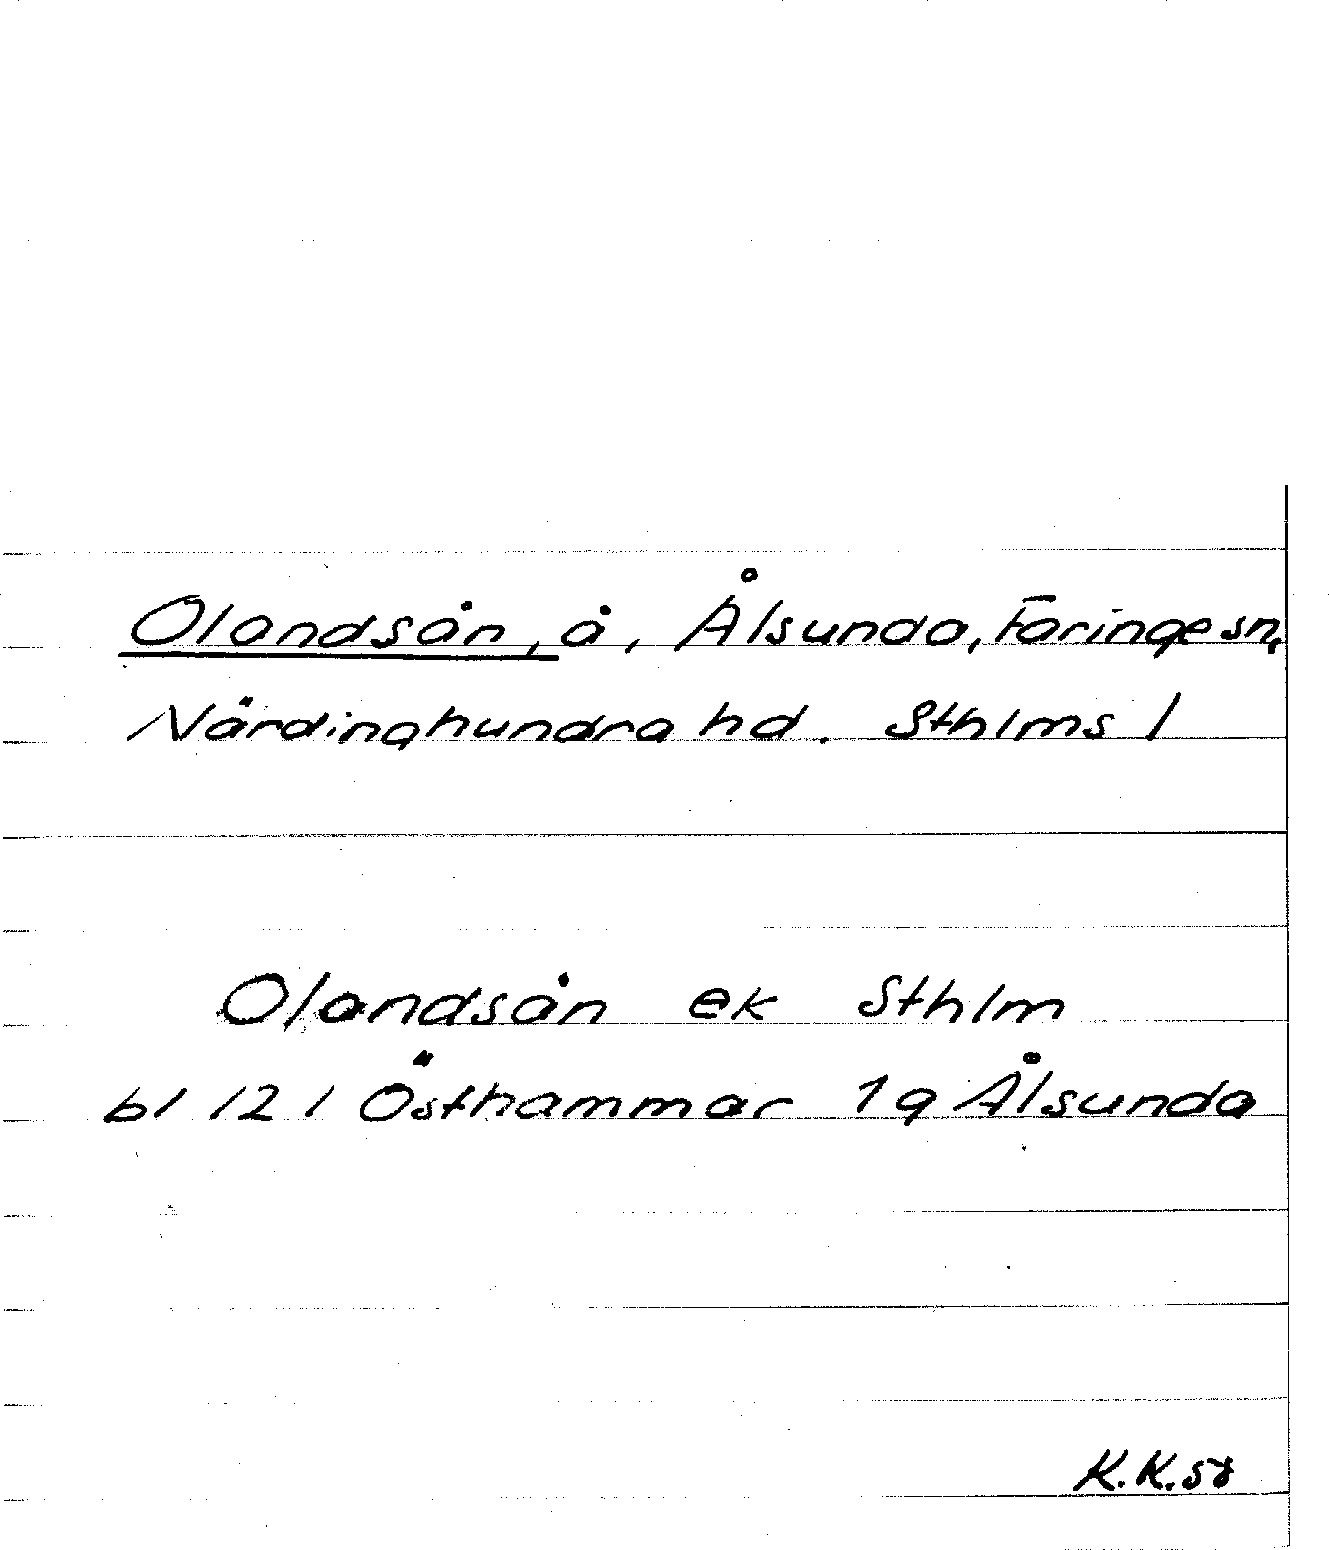 Olandsån, å, Ålsunda, Faringe sn,
Närdinghundra hd. Sthlms l
Olandsån ek Sthlm
bl 121 Östhammar 1g Ålsunda
K.K.58